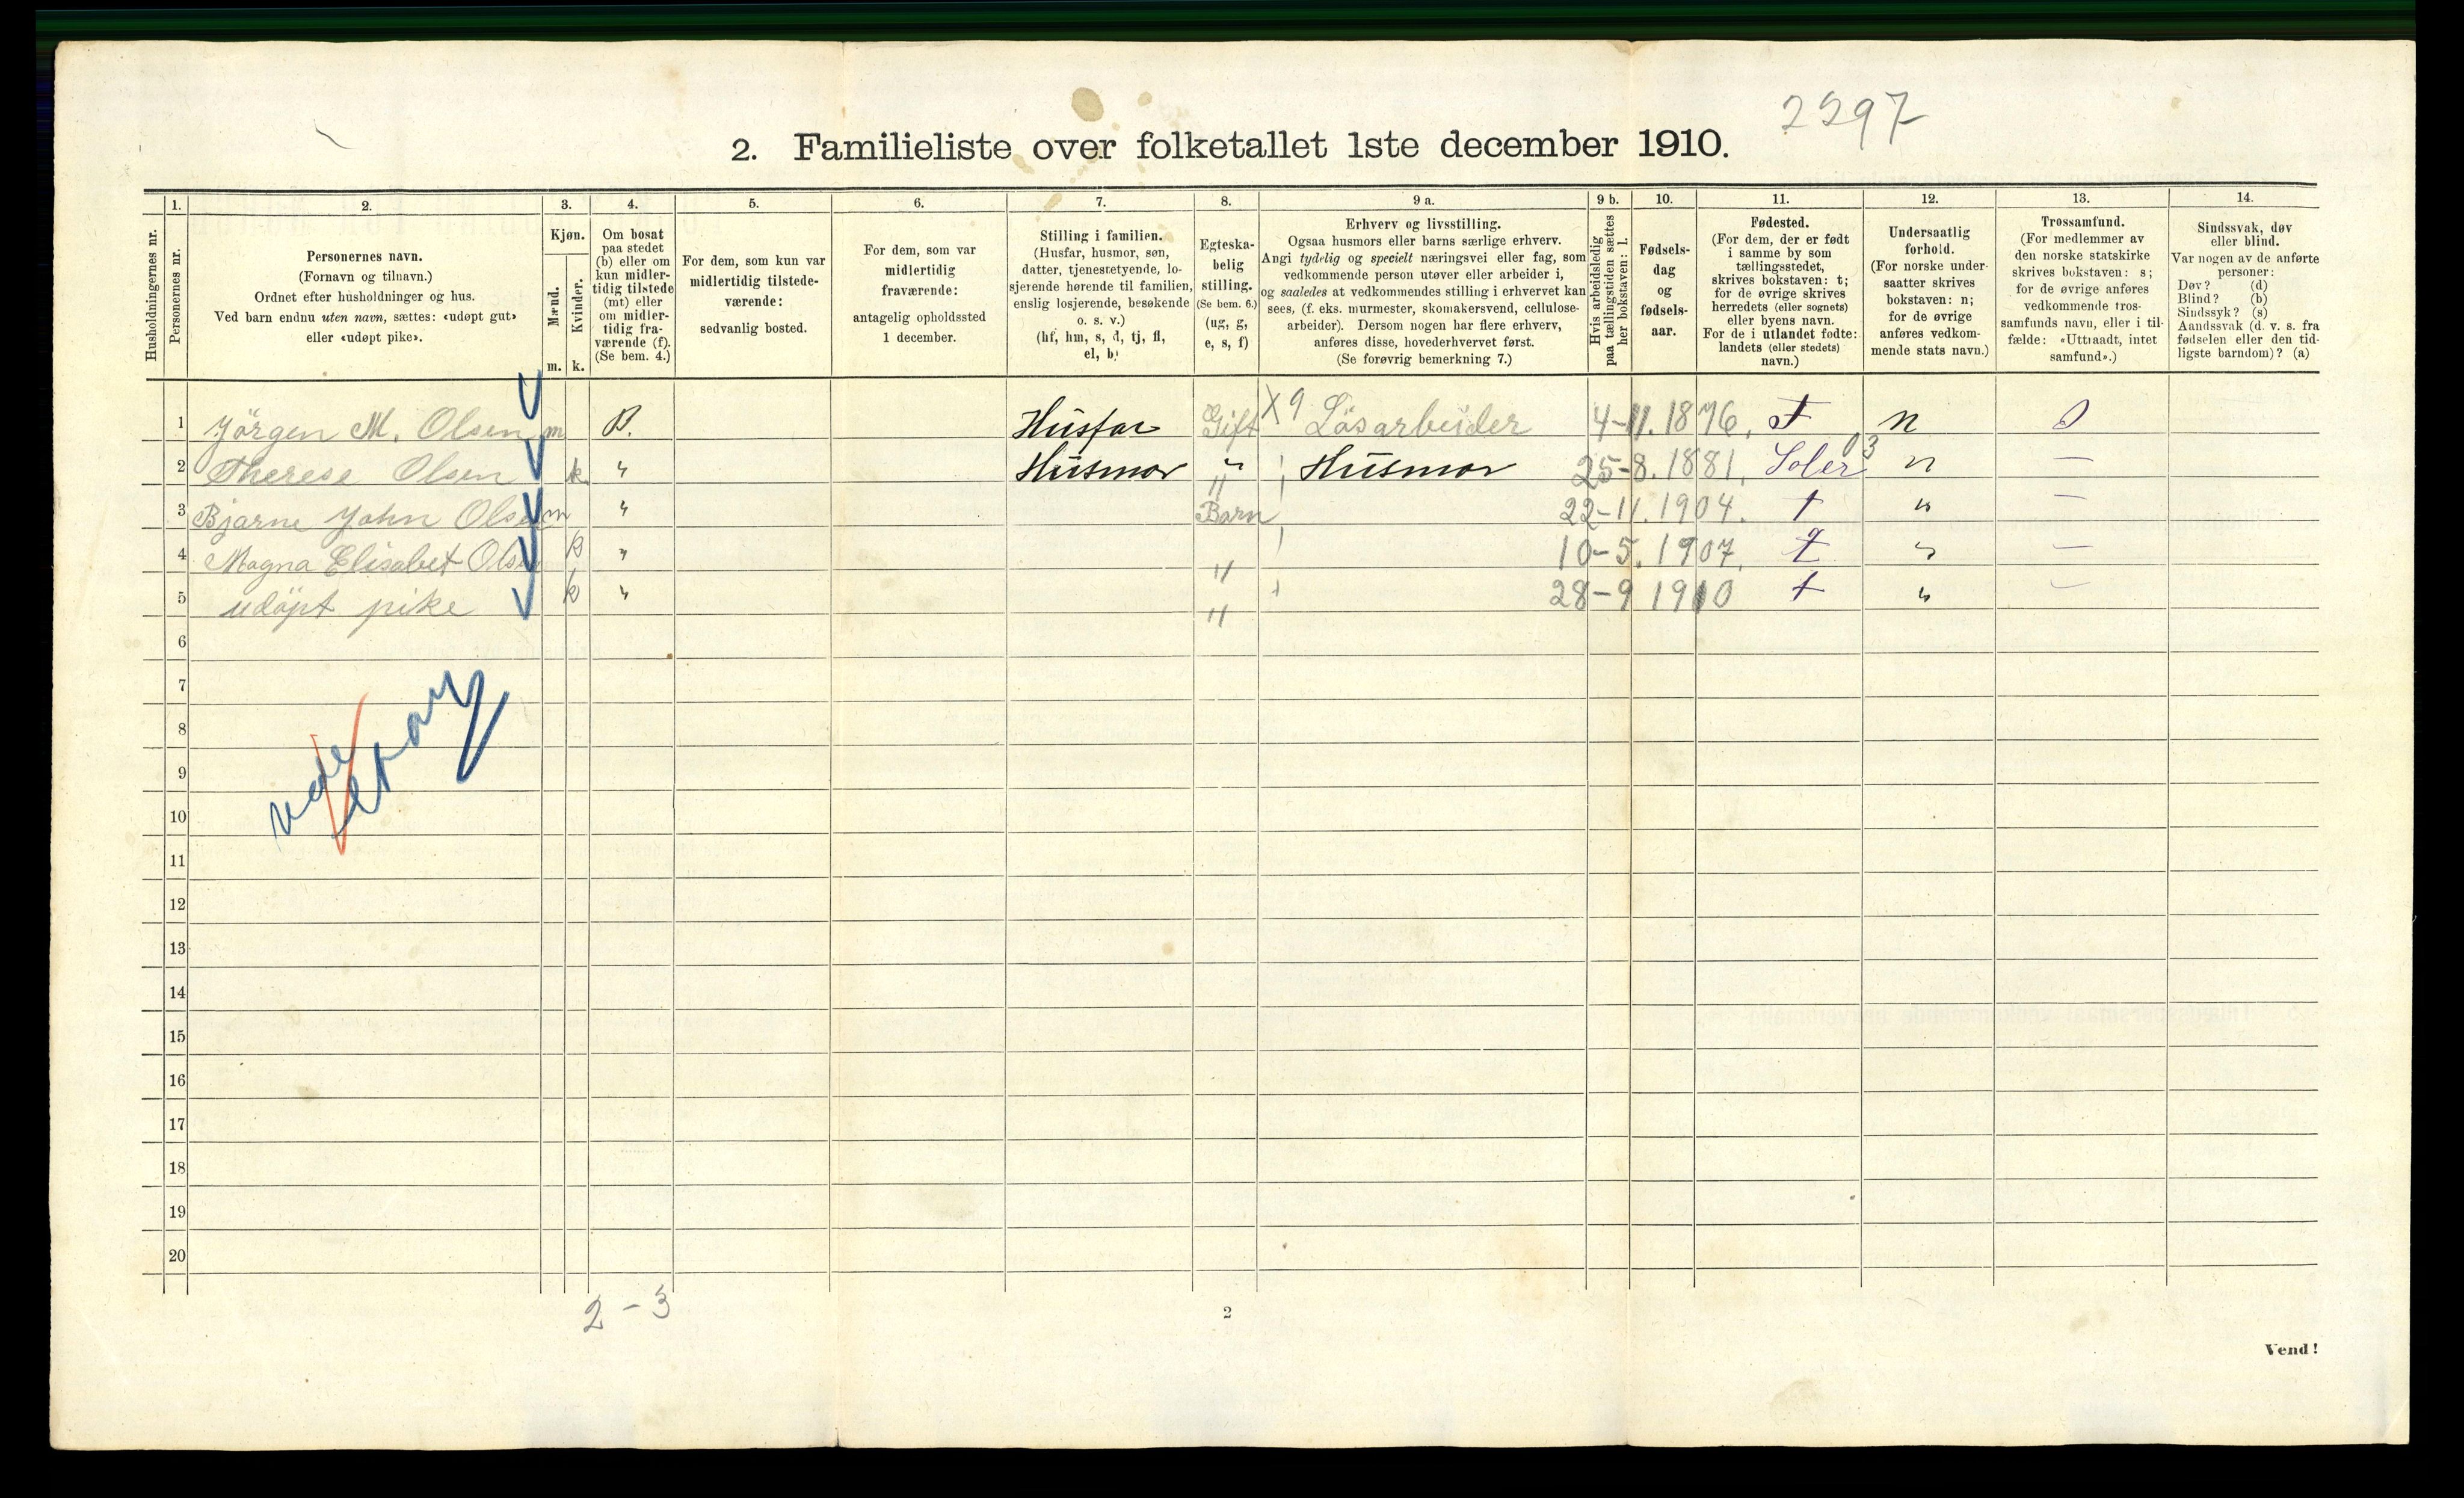 2297
2. Familieliste over folketallet 1ste december 1910.
1. 2. 3. 4. 5. 6. 7. 8. 9 a. 9 b. 10. 11. 12. 13. 14.
Husholdningernes nr.
Personernes nr.
Personernes navn.
(Fornavn og tilnavn.)
Ordnet efter husholdninger og hus.
Ved barn endnu uten navn, sættes: «udøpt gut»
eller «udøpt pike».
Kjøn.
Mænd.
Kvinder.
m. k.
Om bosat
paa stedet
(b) eller om
kun midler-
tidig tilstede
(mt) eller
om midler-
tidig fra-
værende (f).
(Se bem. 4.)
For dem, som kun var
midlertidig tilstede-
værende:
sedvanlig bosted.
For dem, som var
midlertidig
fraværende:
antagelig opholdssted
1 december.
Stilling i familien.
(Husfar, husmor, søn,
datter, tjenestetyende, lo-
sjerende hørende til familien,
enslig losjerende, besøkende
o. s. v.)
(hf, hm, s, d, tj, fl,
el, b)
Egteska-
belig
stilling.
(Se bem. 6.)
(ug, g,
e, s, f)
Erhverv og livsstilling.
Ogsaa husmors eller barns særlige erhverv.
Angi tydelig og specielt næringsvei eller fag, som
vedkommende person utøver eller arbeider i,
og saaledes at vedkommendes stilling i erhvervet kan
sees, (f. eks. murmester, skomakersvend, cellulose-
arbeider). Dersom nogen har flere erhverv,
anføres disse, hovederhvervet først.
(Se forøvrig bemerkning 7.)
Hvis arbeidsledig
paa tællingstiden sættes
her bokstaven: l.
Fødsels-
dag
og
fødsels-
aar.
Fødested.
(For dem, der er født
i samme by som
tællingsstedet,
skrives bokstaven: t;
for de øvrige skrives
herredets (eller sognets)
eller byens navn.
For de i utlandet fødte:
landets (eller stedets)
navn.)
Undersaatlig
forhold.
(For norske under-
saatter skrives
bokstaven: n;
for de øvrige
anføres vedkom-
mende stats navn.)
Trossamfund.
(For medlemmer av
den norske statskirke
skrives bokstaven: s;
for de øvrige anføres
vedkommende tros-
samfunds navn, eller i til-
fælde: «Uttraadt, intet
samfund».)
Sindssvak, døv
eller blind.
Var nogen av de anførte
personer:
Døv? (d)
Blind? (b)
Sindssyk? (s)
Aandssvak (d. v. s. fra
fødselen eller den tid-
ligste barndom)? (a)
1 Jörgen M. Olsen m B. Husfar Gift X 9 Lösarbeider 4-11.1876. t n s
2 Therese Olsen k " Husmor " Husmor 25-8.1881. Soler 03 n —
3 Bjarne John Olsen m " Barn 22-11.1904. t " —
4 Magna Elisabet Olsen k " " 10-5.1907. t " —
5 udöpt pike k " " 28-9 1910 t " —
6
7
8
9
10
11
12
13
14
15
16
17
18
19
20
2-3
2
Vend!